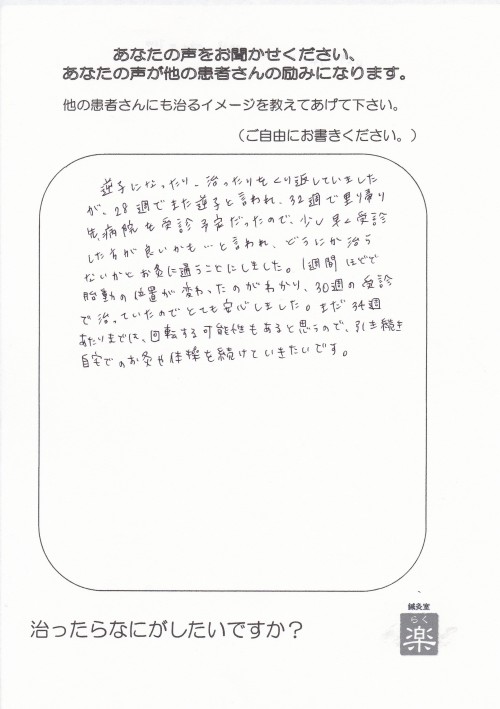 あなたの声をお聞かせください、
あなたの声が他の患者さんの励みになります。
他の患者さんにも治るイメージを教えてあげて下さい。
（ご自由にお書きください。）
逆子になったり、治ったりをくり返していました
が、28週でまた逆子と言われ、32週で里帰り
先病院を受診予定だったので、少し早く受診
した方が良いかも…と言われ、どうにか治ら
ないかとお灸に通うことにしました。1週間ほどで
胎動の位置が変わったのがわかり、30週の受診
で治っていたのでとても安心しました。まだ34週
あたりまでは、回転する可能性もあると思うので、引き続き
自宅でのお灸や体操を続けていきたいです。
治ったらなにがしたいですか？
鍼灸室
らく
楽